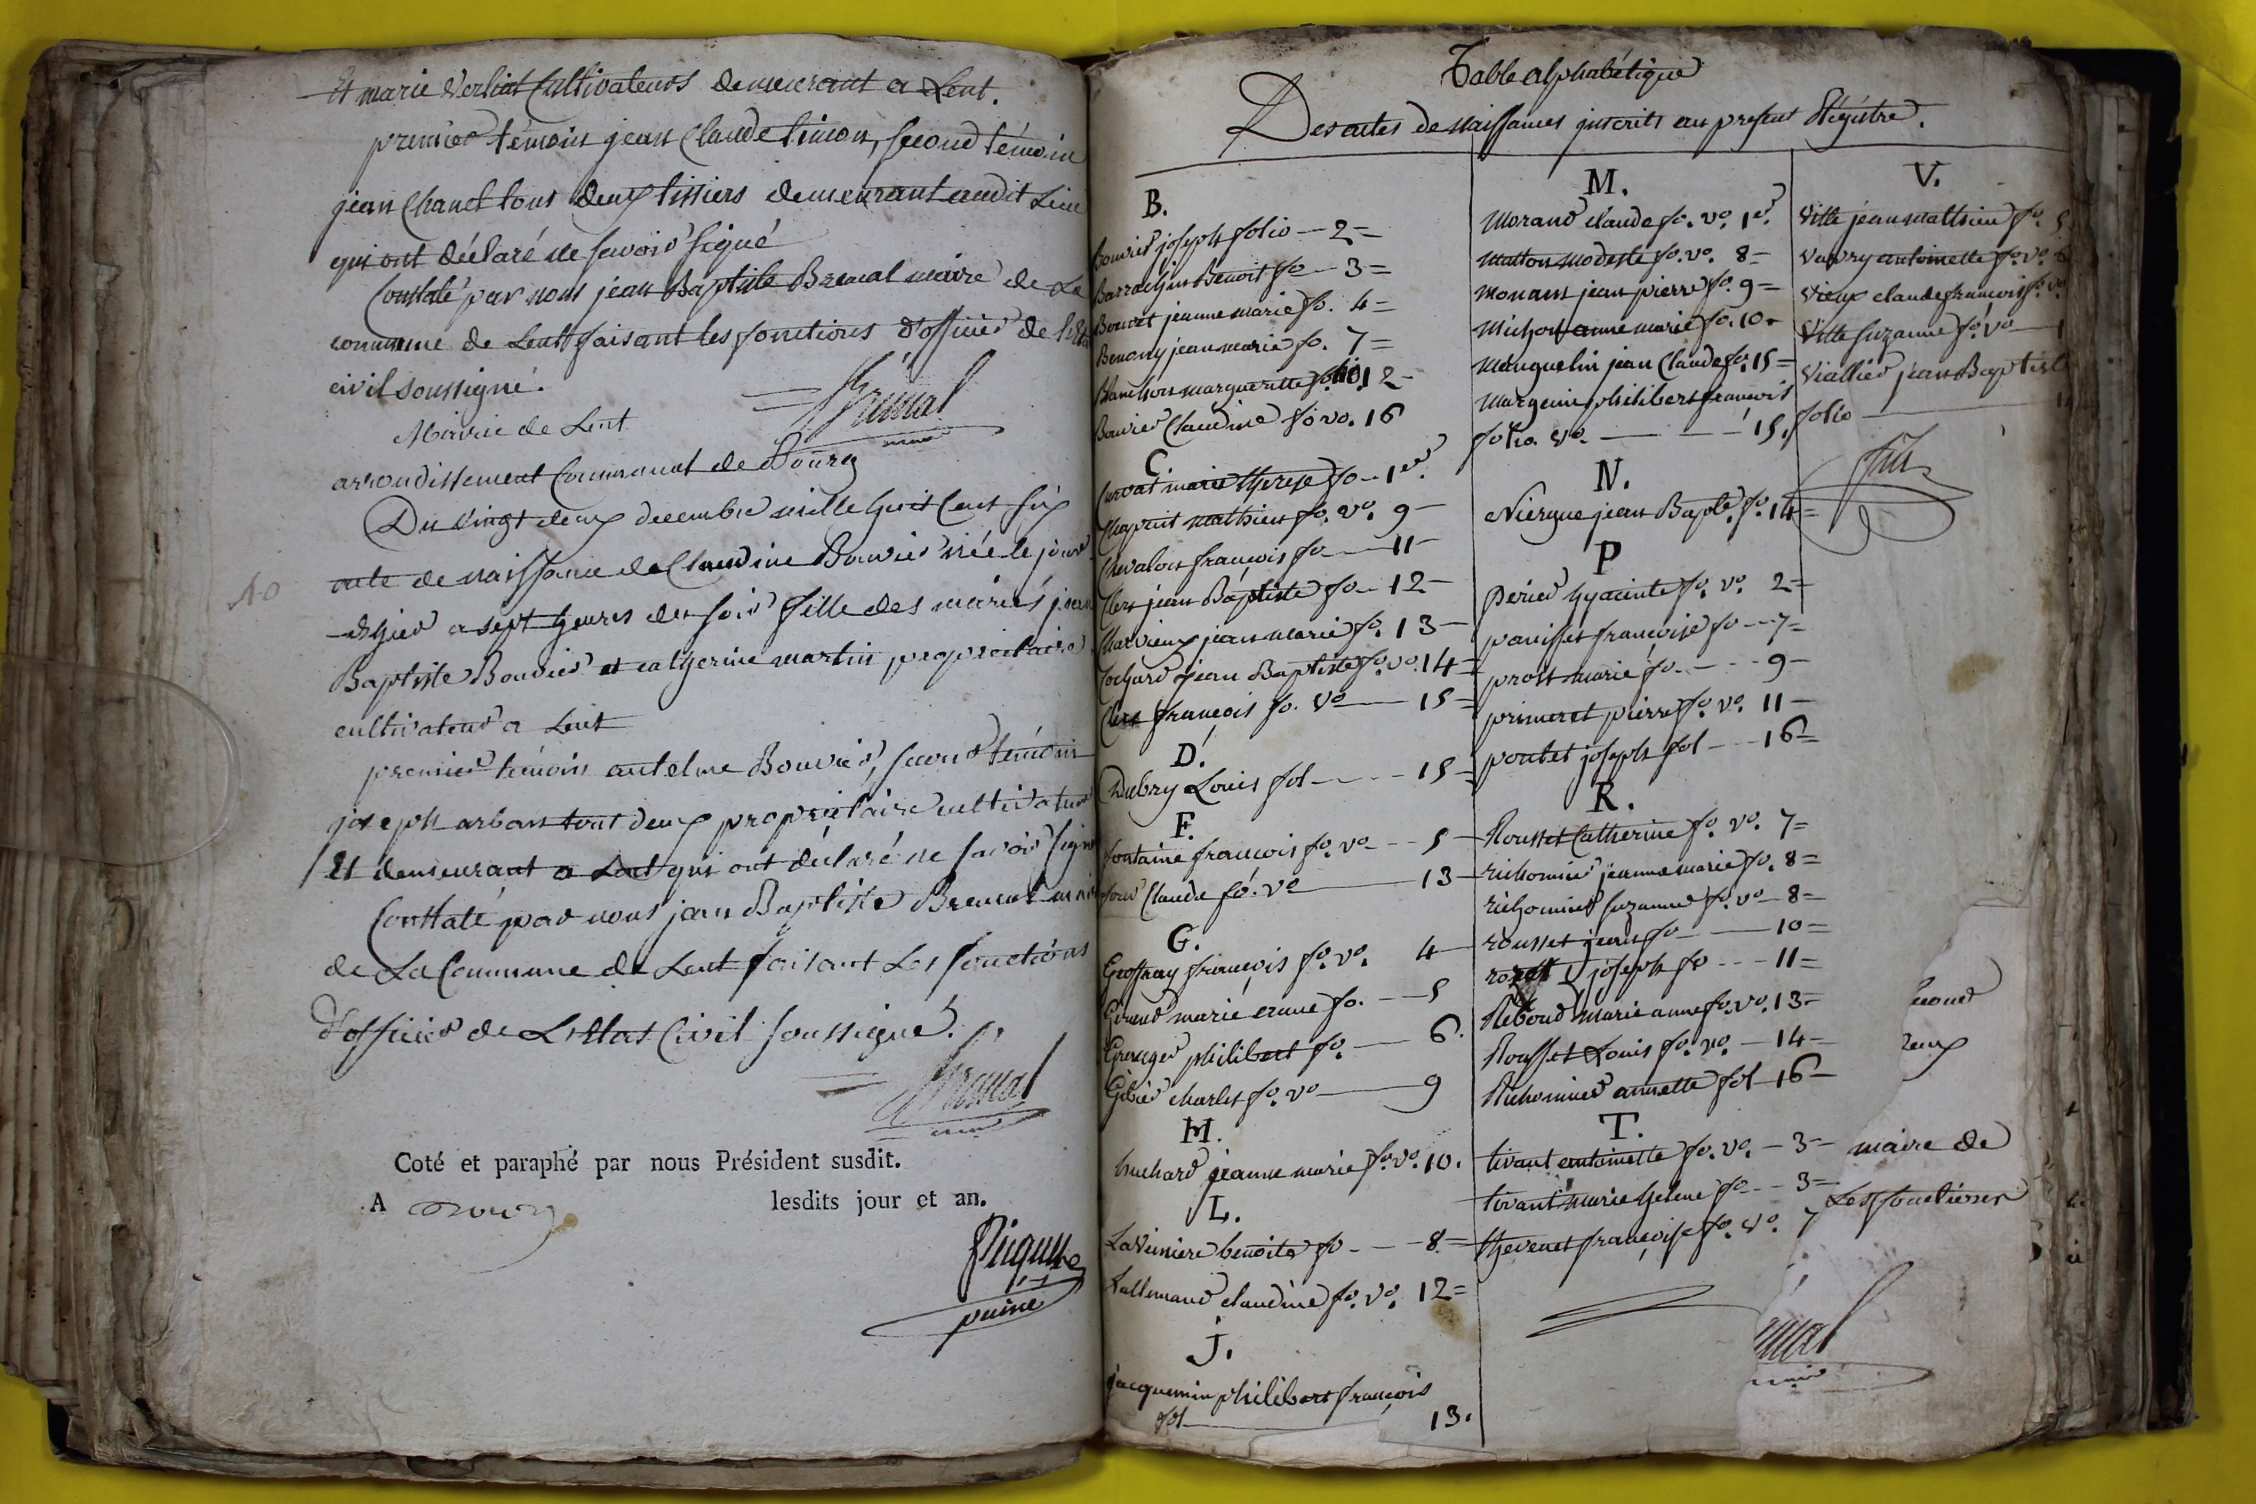 Et marie Verliat Cultivateurs demeurant a Lent.
premier témoin jean Claude timon, second témoin
jean Chanel tous deux tissiers demeurant audit Lieu
qui ont déclaré ne savoir signé
Constaté par nous jean Baptiste Bremal maire de La
commune de Lent faisant les fonctions d'officier de l'état
civil soussigné.
Bremal
maire
Mairie de Lent
arrondissement Communal de Bourg
Du vingt deux decembre mille huit Cent six
acte de naissance de Claudine Bouvier née le jour
d'hier a sept heures du soir fille des mariés jean
Baptiste Bouvier et catherine martin proprietaire
cultivateur a Lent
premier témoin antelme Bouvier, second témoin
joseph arban tout deux propriétaire cultivateur
Et demeurant a Lent qui ont déclaré ne savoir signé
Constaté par nous jean Baptiste Bremal maire
de La Commune de Lent faisant Les fonctions
d'officier de L'Etat Civil soussigné.
Bremal
maire
Coté et paraphé par nous Président susdit.
A Bourg lesdits jour et an.
Picquet
puiné
Table alphabétique
Des actes de naissances inscrits au present Régistre.
B.
Bouvier joseph folio — 2 =
Barrachin Benoit fo — 3 =
Bouvet jeanne marie fo. 4 =
Benony jean marie fo. 7 =
Blanchon marguerite folio 12 -
Bouvier Claudine fo vo. 16
C.
Curvat marie therese fo — 1er.
Chapuit mathieu fo. vo. 9 -
Chevalon françois fo — 11 -
Clerc jean Baptiste fo — 12 -
Charvieux jean marie fo. 13 -
Cochard jean Baptiste fo. vo. 14 =
Clerc françois fo. vo — 15 =
D.
Dubry Louis fol — 15 =
F.
fontaine françois fo. vo — 5
four Claude fo. vo — 13
G.
Geoffray françois fo. vo. 4
Giraud marie anne fo. — 5
Granger philibert fo. — 6.
Gibier charles fo. vo — 9
H.
huchard jeanne marie fo. vo. 10.
L.
Laverniere benoite fo — 8. =
Lallemand claudine fo. vo. 12 =
J.
jacquemin philibert françois
fol — 13.
M.
Morand claude fo. vo. 1er.
Matton modeste fo. vo. 8 =
Monam jean pierre fo. 9 =
Michon anne marie fo. 10 -
Manguelin jean Claude fo. 15 =
Margerin philibert françois
folio. vo. — 15.
N.
Niergue jean Baple. fo. 14 =
P
Perier hyacinte fo. vo. 2 =
panisset françoise fo — 7 =
prost marie fo. — 9 -
primeret pierre fo. vo. 11 -
poulet joseph fol — 16 =
R.
Rousset Catherine fo. vo. 7 =
richomier jeanne marie fo. 8 =
richomier suzanne fo. vo — 8 =
rousset jean fo — 10 =
joseph fo — 11 =
Reboud marie anne fo. vo. 13 -
Rousset Louis fo. vo. — 14 -
Richomier annette fol 16 -
T.
tivant antoinette fo. vo. — 3 -
tivant marie helene fo — 3 =
thevenet françoise fo. vo. 7
V.
Ville jean mathieu fo. 5
Vavry antoinette fo. vo.
Vieux claude françois fo. vo
Ville suzanne fo. vo — 1
Viallier jean Baptiste
folio —
fin
second
deux
maire de
Les fonctions
mal
maire